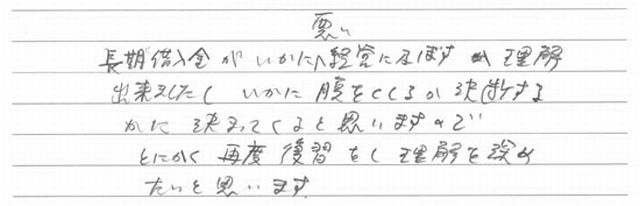 悪い
長期借入金がいかに経営に及ぼすか理解
出来ましたし いかに腹をくくるか決断する
かに決まってくると思いますので
とにかく再度復習をし理解を深め
たいと思います